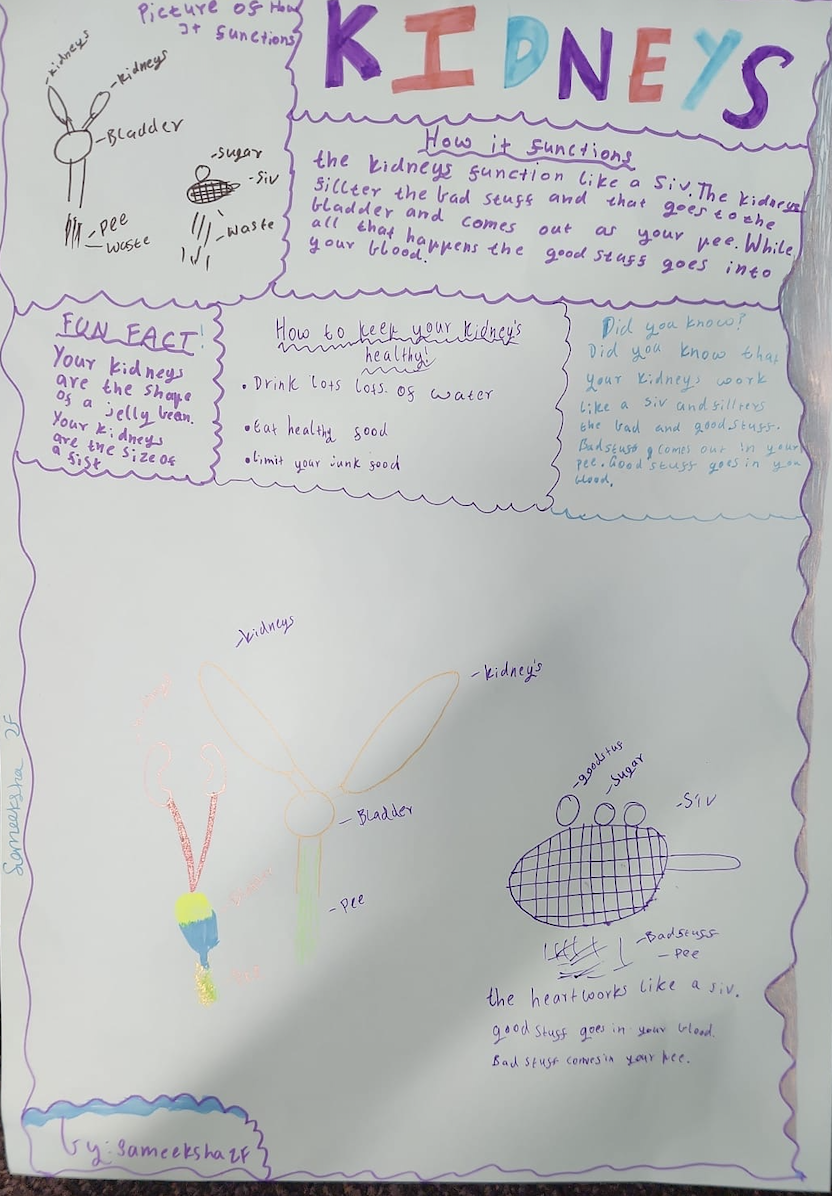 Picture of How
It functions
KIDNEYS
-kidneys
-kidneys
-Bladder
-sugar
-siv
-pee
-waste
-waste
How it functions
the kidneys function like a Siv. The kidneys
fillter the bad stuff and that goes to the
bladder and comes out as your pee. While
all that happens the good stuff goes into
your blood.
FUN FACT!
Your kidneys
are the shape
of a jelly bean.
Your kidneys
are the size of
a fist
How to keep your kidney's
healthy!
• Drink lots lots. of water
• Eat healthy food
• limit your junk food
Did you know?
Did you know that
your kidneys work
like a siv and fillters
the bad and good stuff.
Bad stuff comes out in your
pee. Good stuff goes in you
blood.
-kidneys
-kidney's
-Bladder
-pee
-goodstuf
-Sugar
-Siv
-Badstuff
-pee
the heart works like a siv.
good stuff goes in your blood.
Bad stuff comes in your pee.
Sameeksha 2F
by: Sameeksha 2F